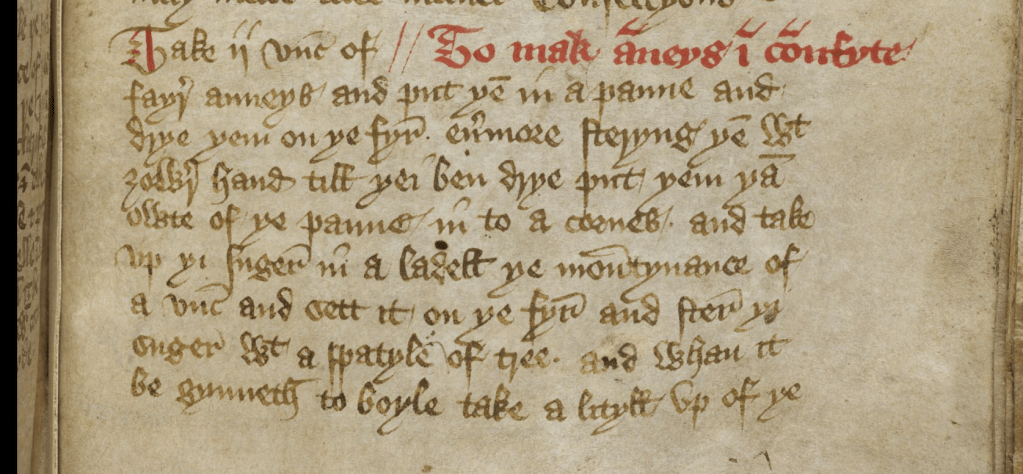 may make all maner Confeccyons
Take ij vnc̄ of // To mak āneys ī cōnfyte
fayr̄ anneys and put yē in a panne and
drye yem on ye fyr̄. eūmore steryng yē wt
zowr̄ hand till yei ben drye put yem yā
owte of ye panne in to a cornes. and take
vp yi suger in a ladell ye mōūtynance of
a vnc̄ and sett it on ye fyr̄ and ster̄ yi
suger wt a spatyle of tree. and whan it
be gynneth to boyle take a lityll vp of ye